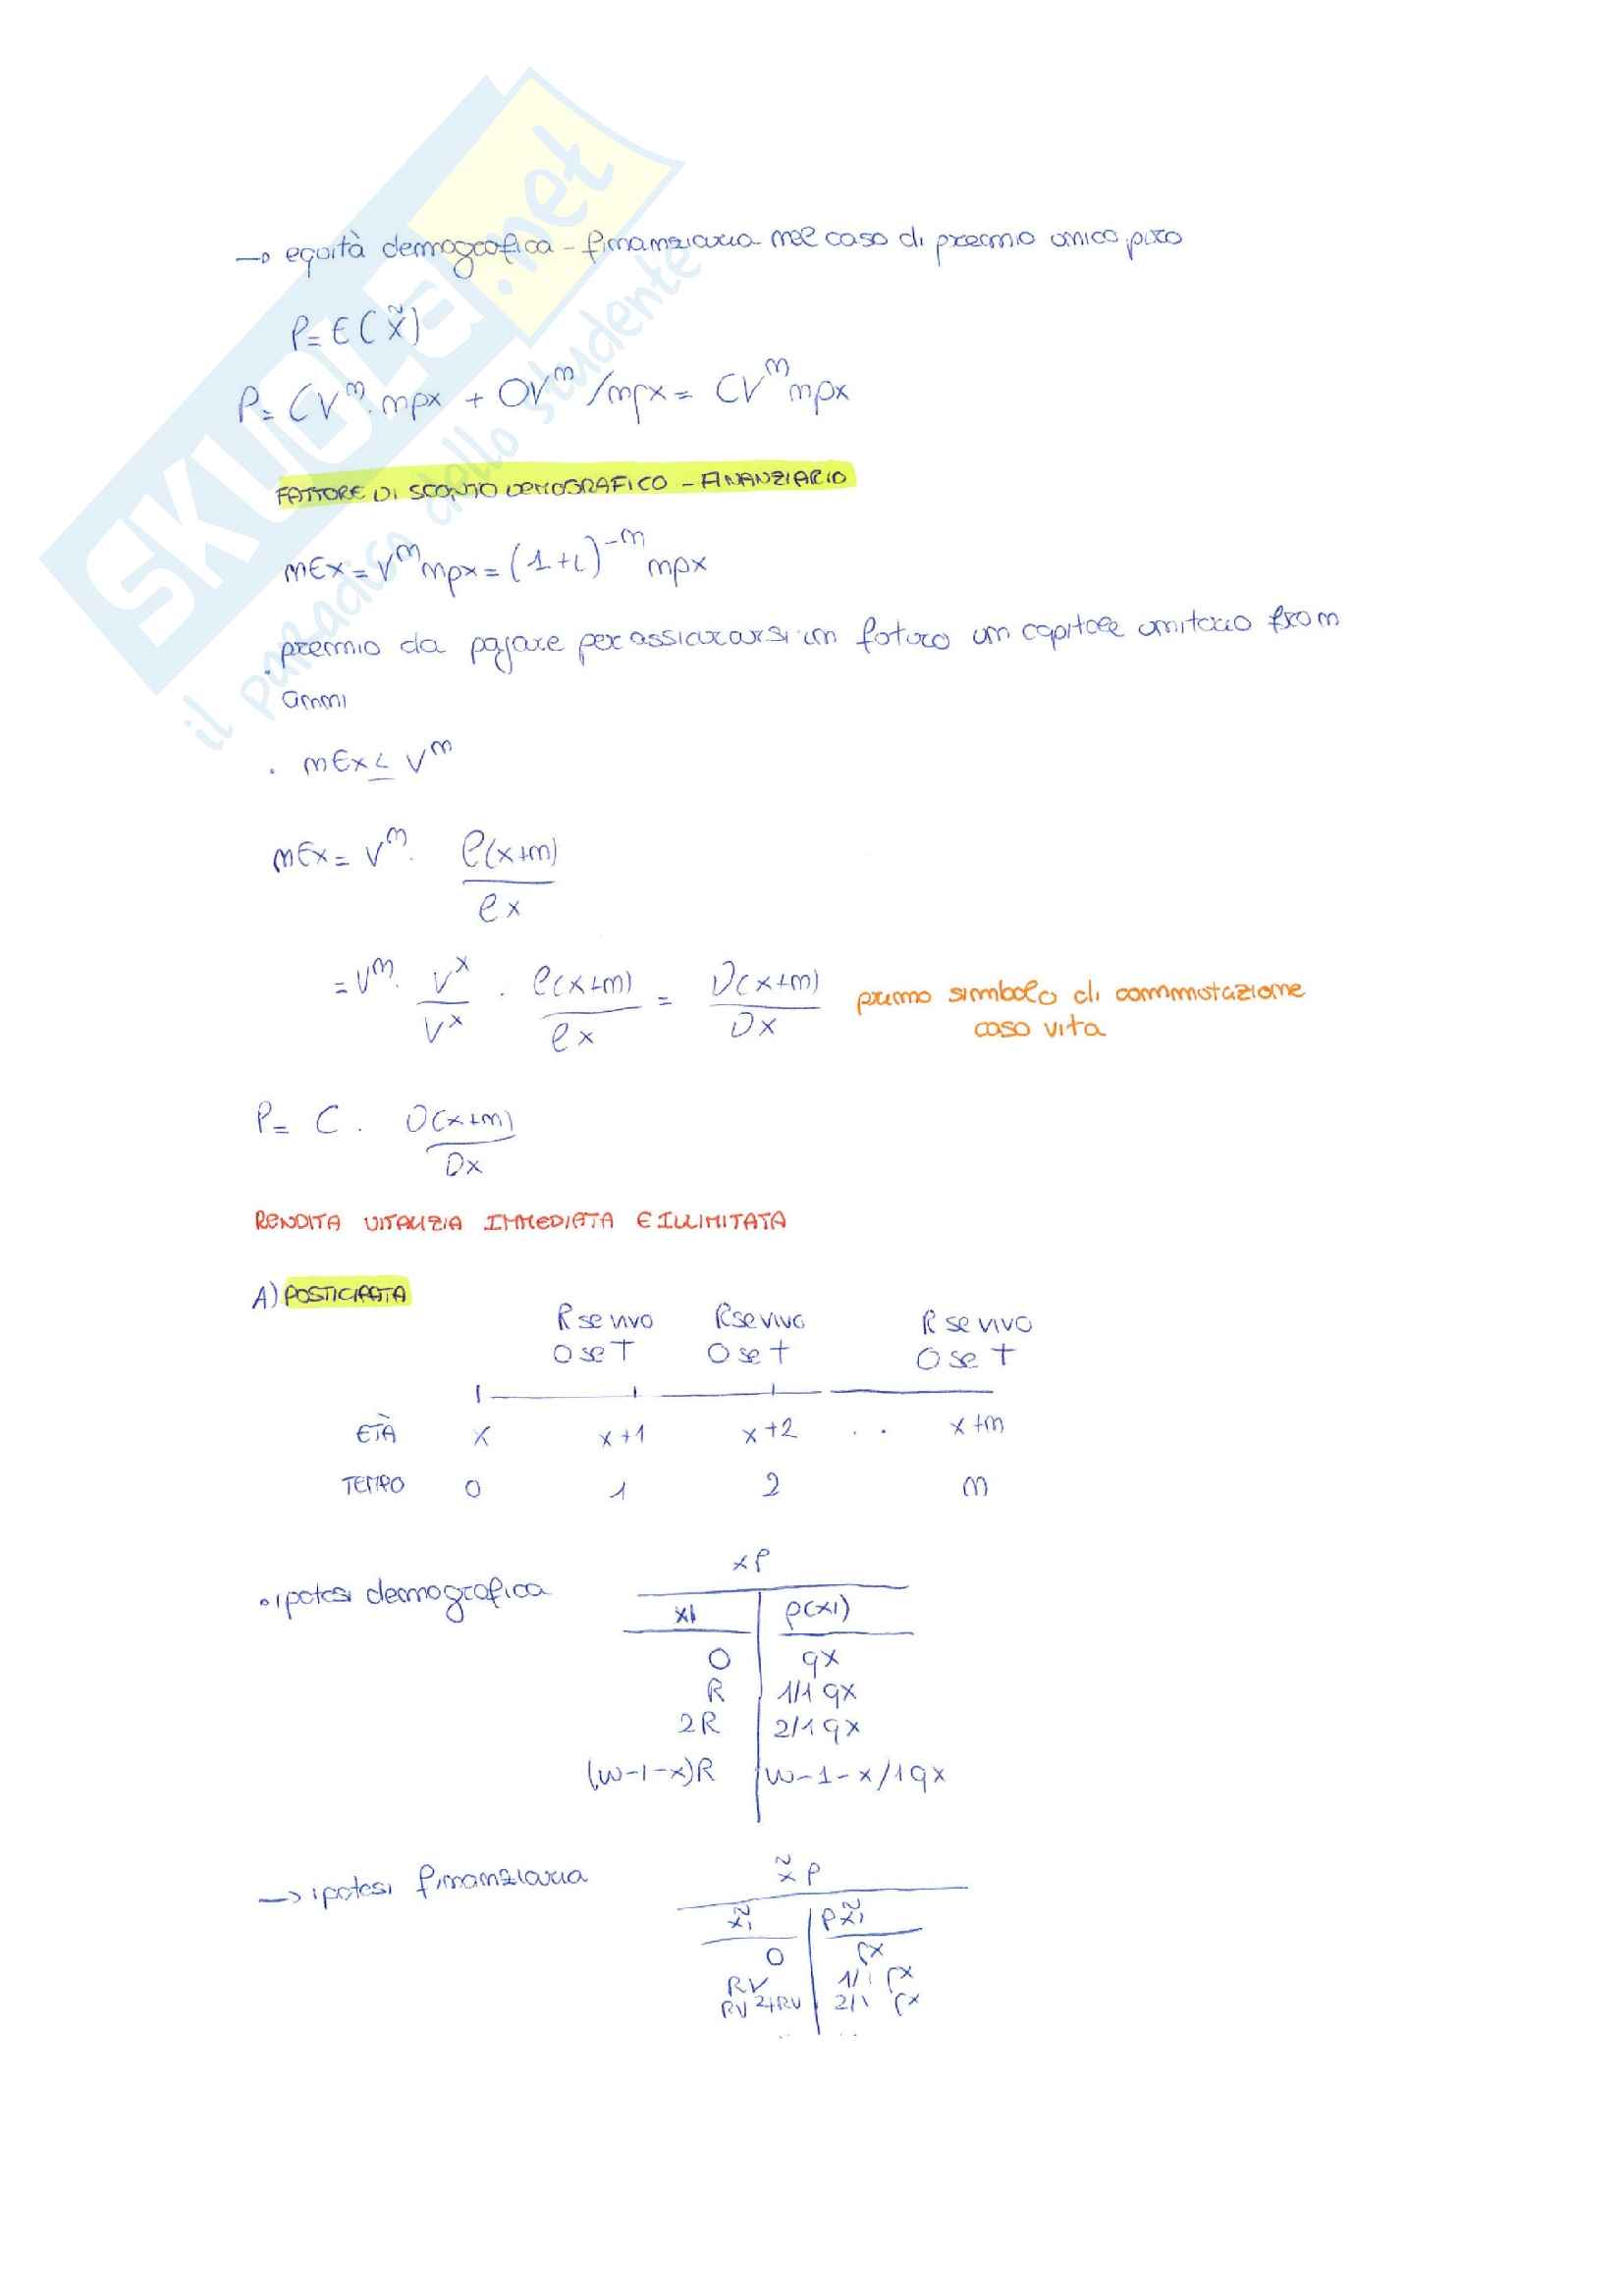 SKUOLA.net
il paradiso dello studente
→ equità demografica - finanziaria nel caso di premio unico puro
P = E(X̃)
P = CVⁿ · npx + 0Vⁿ /npx = CVⁿ npx
FATTORE DI SCONTO DEMOGRAFICO - FINANZIARIO
nEx = Vⁿ npx = (1+i)⁻ⁿ npx
. premio da pagare per assicurarsi in futuro un capitale unitario fra n
anni
. nEx ≤ Vⁿ
nEx = Vⁿ · l(x+n) / lx
= Vⁿ · Vˣ / Vˣ · l(x+n) / lx = D(x+n) / Dx primo simbolo di commutazione
caso vita
P = C · D(x+n) / Dx
RENDITA VITALIZIA IMMEDIATA E ILLIMITATA
A) POSTICIPATA
R se vivo R se vivo R se vivo
0 se † 0 se † 0 se †
ETÀ x x+1 x+2 . . x+n
TEMPO 0 1 2 n
• ipotesi demografica
xP
xi p(xi)
0 qx
R 1/1 qx
2R 2/1 qx
(w-1-x)R w-1-x/1qx
→ ipotesi finanziaria
x̃ P
x̃i p x̃i
0 qx
RV 1/1 qx
RV²+RV 2/1 qx